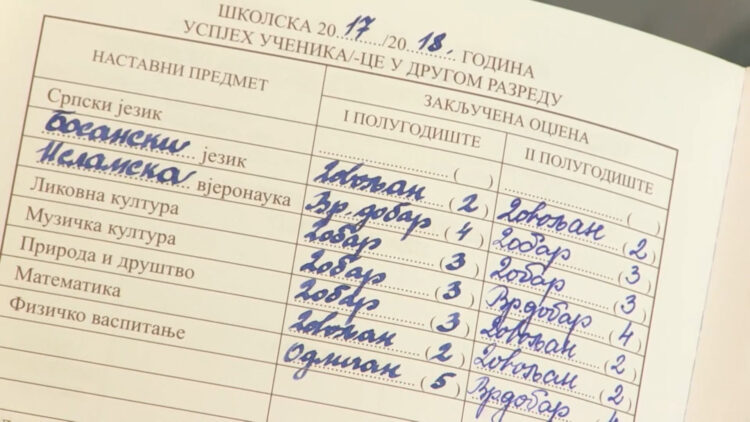 ШКОЛСКА 2017/2018. ГОДИНА
УСПЈЕХ УЧЕНИКА/-ЦЕ У ДРУГОМ РАЗРЕДУ
НАСТАВНИ ПРЕДМЕТ ЗАКЉУЧЕНА ОЦЈЕНА
I ПОЛУГОДИШТЕ II ПОЛУГОДИШТЕ
Српски језик ( ) ( )
Босански језик довољан (2) довољан (2)
Исламска вјеронаука Вр. добар (4) добар (3)
Ликовна култура добар (3) добар (3)
Музичка култура добар (3) Врдобар (4)
Природа и друштво добар (3) довољан (2)
Математика довољан (2) довољан (2)
Физичко васпитање Одличан (5) Врдобар (4